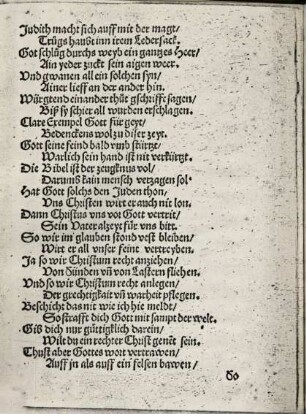 Judith macht sich auff mit der magt/
Trůgs haubt inn irem Ledersack.
Got schlůg durchs weyb ein gantzes Heer/
Ain yeder zuckt sein aigen weer.
Vnd gwanen all ein solchen syn/
Ainer lieff an der ander hin.
Würgtend einander thůt gschrifft sagen/
Biß sy schier all wurden erschlagen.
Clare Exempel Gott für geyt/
Bedenckens wol zů diser zeyt.
Gott seine feind bald vmb stürtzt/
Warlich sein hand ist nit verkürtzt.
Die Bibel ist der zeugknus vol/
Darumb kain mensch verzagen sol.
Hat Got solchs den Juden thon/
Vns Christen wirt er auch nit lon.
Dann Christus vns vor Gott vertrit/
Sein Vater alzeyt für vns bitt.
So wir im glauben stond vest bleiben/
Wirt er all vnser feint vertreyben.
Ja so wir Christum recht anziehen/
Von Sünden vñ von Lastern fliehen.
Vnd so wir Christum recht anlegen/
Der grechtigkait vñ warheit pflegen.
Beschicht das nit wie ich hie meldt/
So strafft dich Gott mit sampt der welt.
Gib dich nur gůttigklich darein/
Wilt du ein rechter Christ genēt sein.
Thůst aber Gottes wort vertrawen/
Auff jn als auff ein felsen bawen/
So